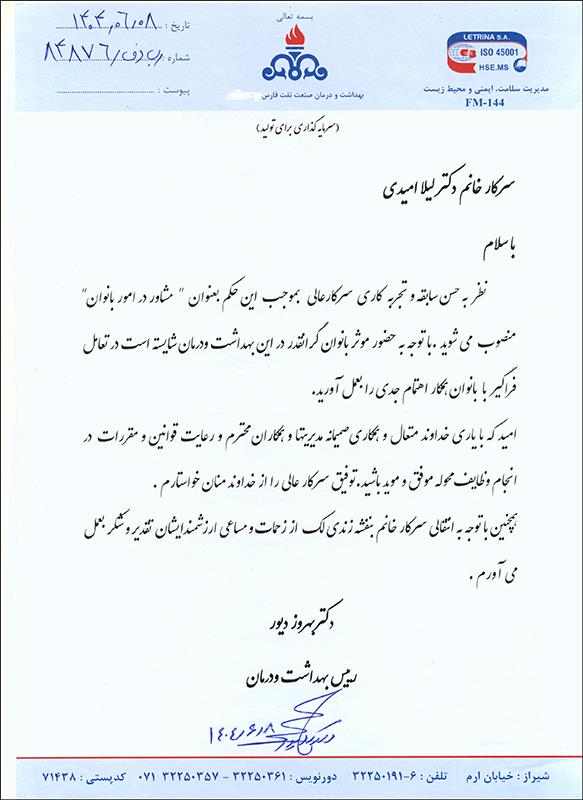 بسمه تعالی
تاریخ : ۱۴۰۴,۰۶,۰۸
شماره : رب دف/۸۴۸۷۶
پیوست :
بهداشت و درمان صنعت نفت فارس
LETRINA S.A.
ISO 45001
HSE.MS
مدیریت سلامت، ایمنی و محیط زیست
FM-144
(سرمایه گذاری برای تولید)
سرکار خانم دکتر لیلا امیدی
با سلام
نظر به حسن سابقه و تجربه کاری سرکارعالی بموجب این حکم بعنوان " مشاور در امور بانوان"
منصوب می شوید .با توجه به حضور موثر بانوان گرانقدر در این بهداشت ودرمان شایسته است در تعامل
فراگیر با بانوان همکار اهتمام جدی را بعمل آورید.
امید که با یاری خداوند متعال و همکاری صمیمانه مدیریتها و همکاران محترم و رعایت قوانین و مقررات در
انجام وظایف محوله موفق و موید باشید.توفیق سرکار عالی را از خداوند منان خواستارم .
همچنین با توجه به انتقالی سرکار خانم بنفشه زندی لک از زحمات و مساعی ارزشمندایشان تقدیر و تشکر بعمل
می آورم .
دکتر بهروز دیور
رییس بهداشت ودرمان
۱۴۰۴,۶,۸
شیراز : خیابان ارم تلفن : ۶-۳۲۲۵۰۱۹۱ دورنویس : ۳۲۲۵۰۳۶۱ - ۳۲۲۵۰۳۵۷ ۰۷۱ کدپستی : ۷۱۴۳۸